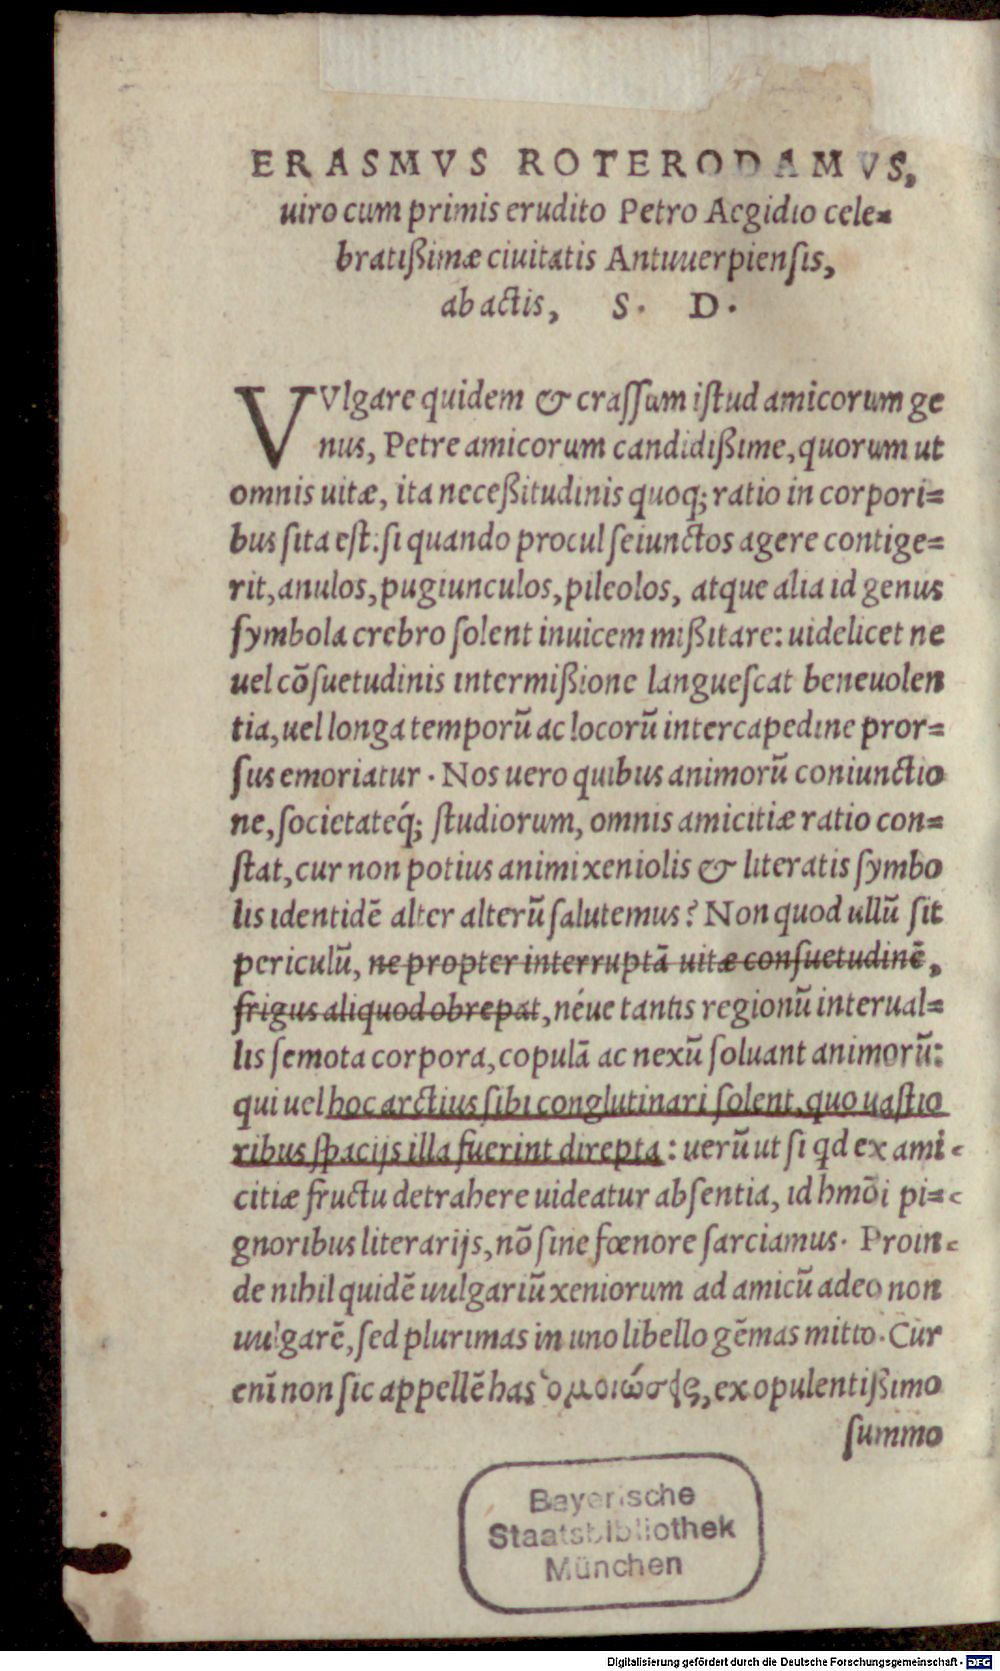 ERASMVS ROTERODAMVS,
uiro cum primis erudito Petro Aegidio cele=
bratißimæ ciuitatis Antuuerpiensis,
ab actis, S. D.
VVlgare quidem & craſſum iſtud amicorum ge
nus, Petre amicorum candidißime, quorum ut
omnis uitæ, ita neceßitudinis quoq; ratio in corpori=
bus ſita eſt: ſi quando procul ſeiunctos agere contige=
rit, anulos, pugiunculos, pileolos, atque alia id genus
ſymbola crebro ſolent inuicem mißitare: uidelicet ne
uel cõſuetudinis intermißione langueſcat beneuolen
tia, uel longa temporũ ac locorũ intercapedine pror=
ſus emoriatur. Nos uero quibus animorũ coniunctio
ne, ſocietateq́; ſtudiorum, omnis amicitiæ ratio con=
ſtat, cur non potius animi xeniolis & literatis ſymbo
lis identidẽ alter alterũ ſalutemus? Non quod ullũ ſit
periculũ, ne propter interruptã uitæ conſuetudinẽ,
frigus aliquod obrepat, néue tantis regionũ interual=
lis ſemota corpora, copulã ac nexũ ſoluant animorũ:
qui uel hoc arctius ſibi conglutinari ſolent, quo uaſtio
ribus ſpacijs illa fuerint direpta: uerũ ut ſi qd ex ami=
citiæ fructu detrahere uideatur abſentia, id hmõi pi=
gnoribus literarijs, nõ ſine fœnore ſarciamus. Proin=
de nihil quidẽ uulgariũ xeniorum ad amicũ adeo non
uulgarẽ, ſed plurimas in uno libello gẽmas mitto. Cur
enĩ non ſic appellẽ has ὁμοιώσεις, ex opulentißimo
ſummo
Bayerische
Staatsbibliothek
München
Digitalisierung gefördert durch die Deutsche Forschungsgemeinschaft - DFG